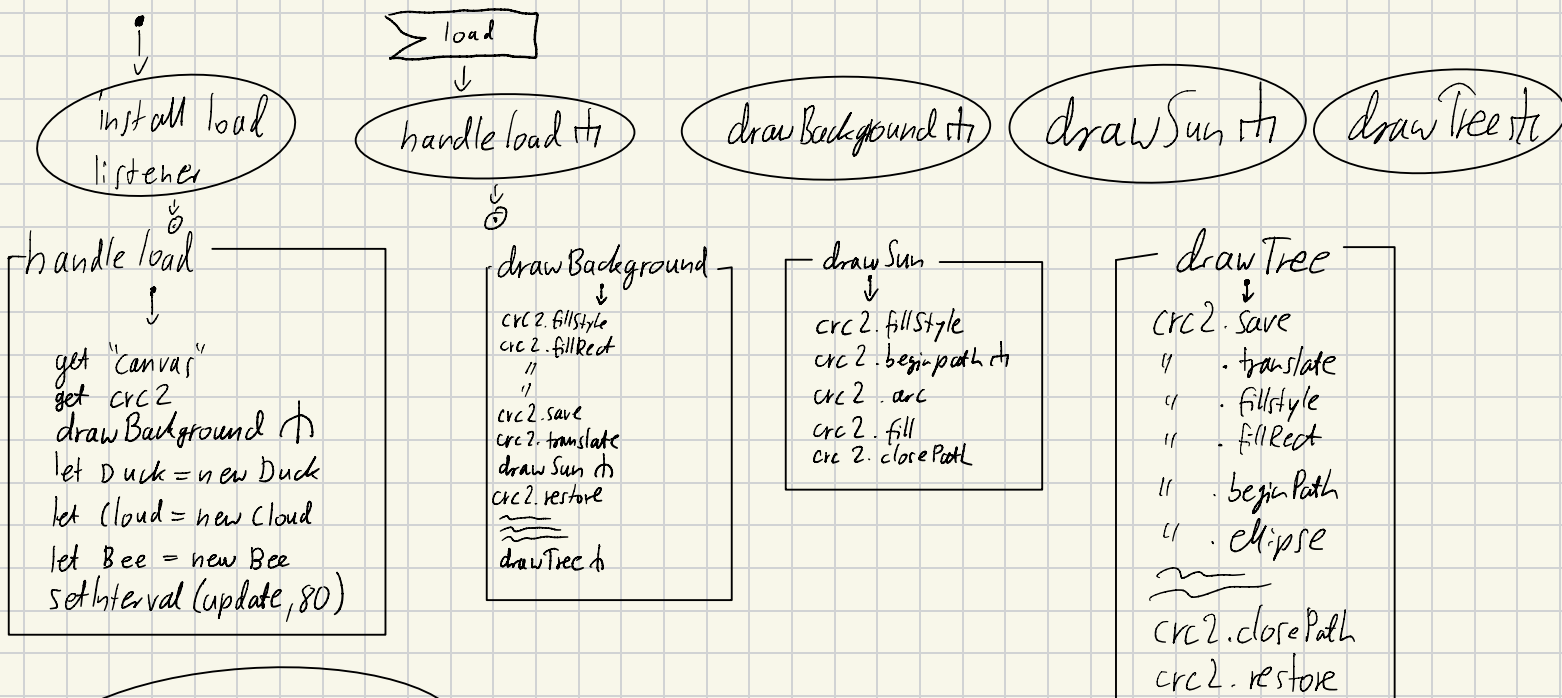 load
install load
listener
handle load
drawBackground
drawSun
drawTree
handle load
get "canvas"
get crc2
drawBackground
let Duck = new Duck
let Cloud = new Cloud
let Bee = new Bee
setInterval (update, 80)
drawBackground
crc2.fillStyle
crc2.fillRect
"
"
crc2.save
crc2.translate
drawSun
crc2.restore
drawTree
drawSun
crc2.fillStyle
crc2.beginpath
crc2.arc
crc2.fill
crc2.closePath
drawTree
crc2.save
" .translate
" .fillstyle
" .fillRect
" .beginPath
" .ellipse
crc2.closePath
crc2.restore